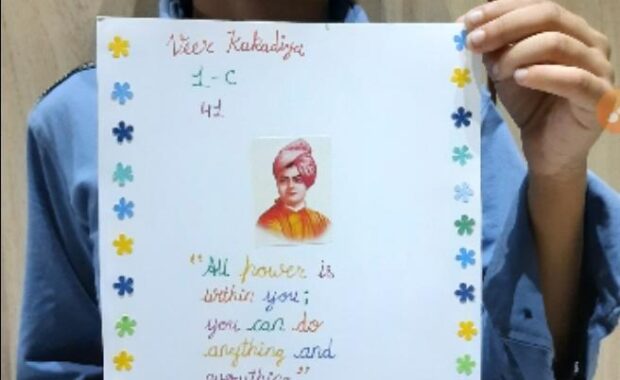 Veer Kakadiya
1-C
41
"All power is
within you;
you can do
anything and
everything"